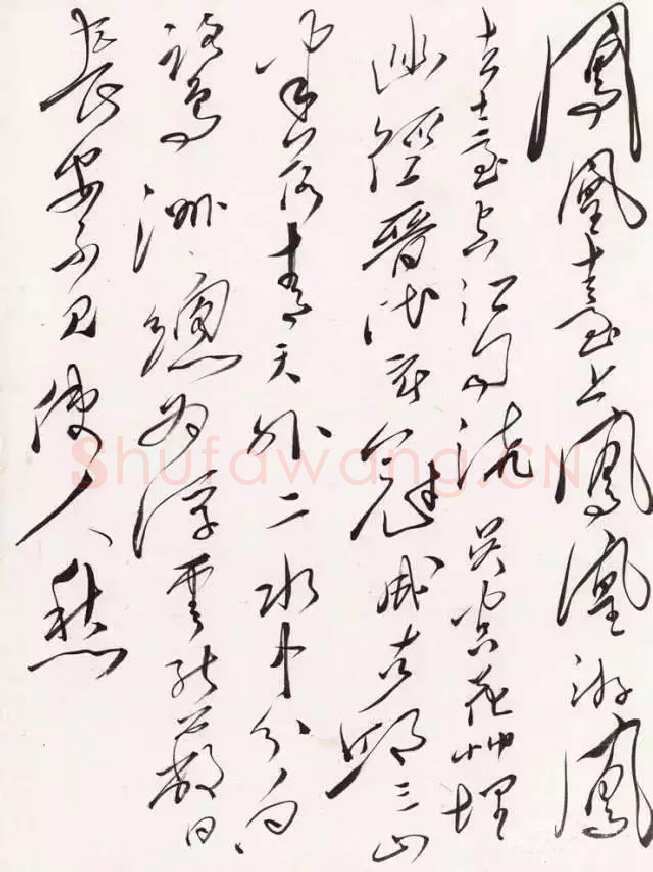 鳳凰臺上鳳凰游鳳
去臺空江自流吳宮花艸埋
幽徑晉代衣冠成古邱三山
半落青天外二水中分白
鷺洲總為浮雲能蔽日
長安不見使人愁
Shufawang.CN